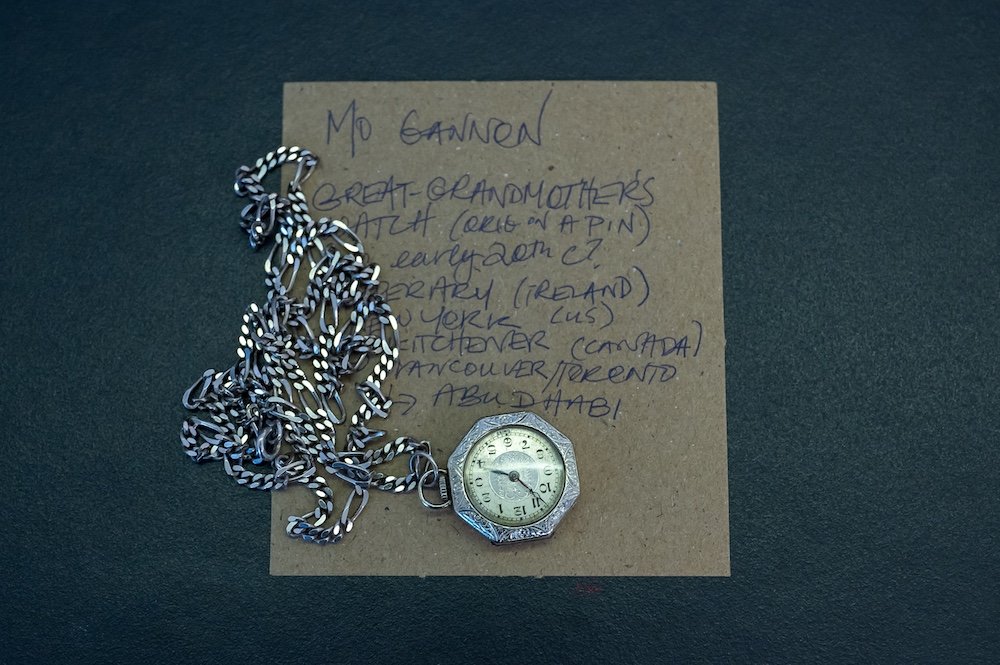 MO GANNON
GREAT-GRANDMOTHER'S
ATCH (ORIG ON A PIN)
early 20th C?
PERARY (IRELAND)
EW YORK (US)
ITCHENER (CANADA)
VANCOUVER/TORONTO
→ ABU DHABI